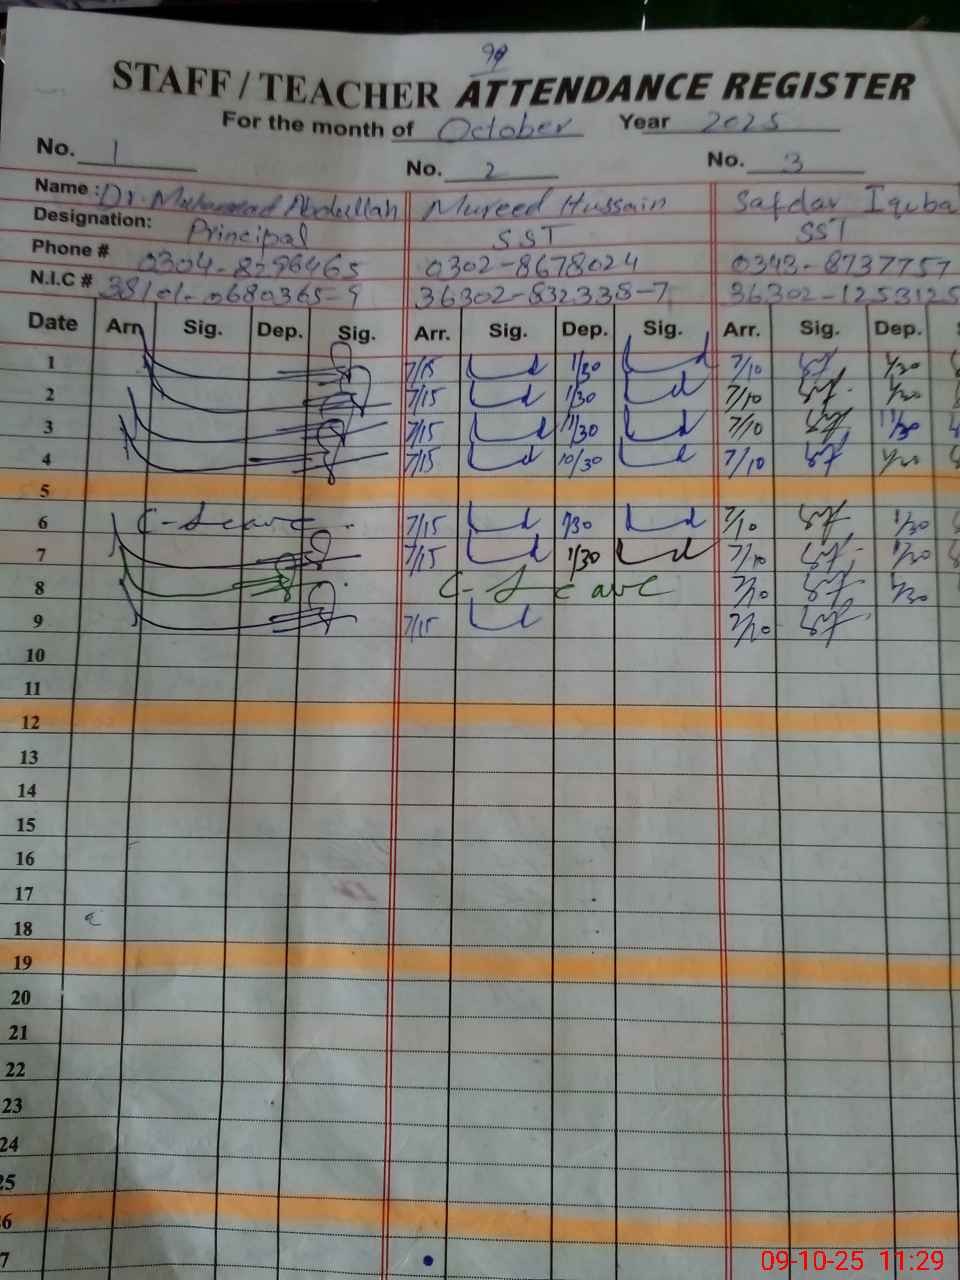 99
STAFF / TEACHER ATTENDANCE REGISTER
For the month of October Year 2025
No. 1 No. 2 No. 3
Name : Dr. Muhammad Abdullah Mureed Hussain Safdar Iqubal
Designation: Principal SST SST
Phone # 0304-8296465 0302-8678024 0343-8737757
N.I.C # 38101-0680365-9 36302-832338-7 36302-1253125
Date Arr. Sig. Dep. Sig. Arr. Sig. Dep. Sig. Arr. Sig. Dep. S
1 7/15 1/30 7/10 1/30
2 7/15 1/30 7/10 1/30
3 7/15 11/30 7/10 11/30
4 7/15 10/30 7/10
5
6 C-Leave 7/15 1/30 7/10 1/30
7 7/15 1/30 7/10 1/30
8 C-Leave 7/10 1/30
9 7/15 7/10
10
11
12
13
14
15
16
17
18
19
20
21
22
23
24
25
6
7
09-10-25 11:29